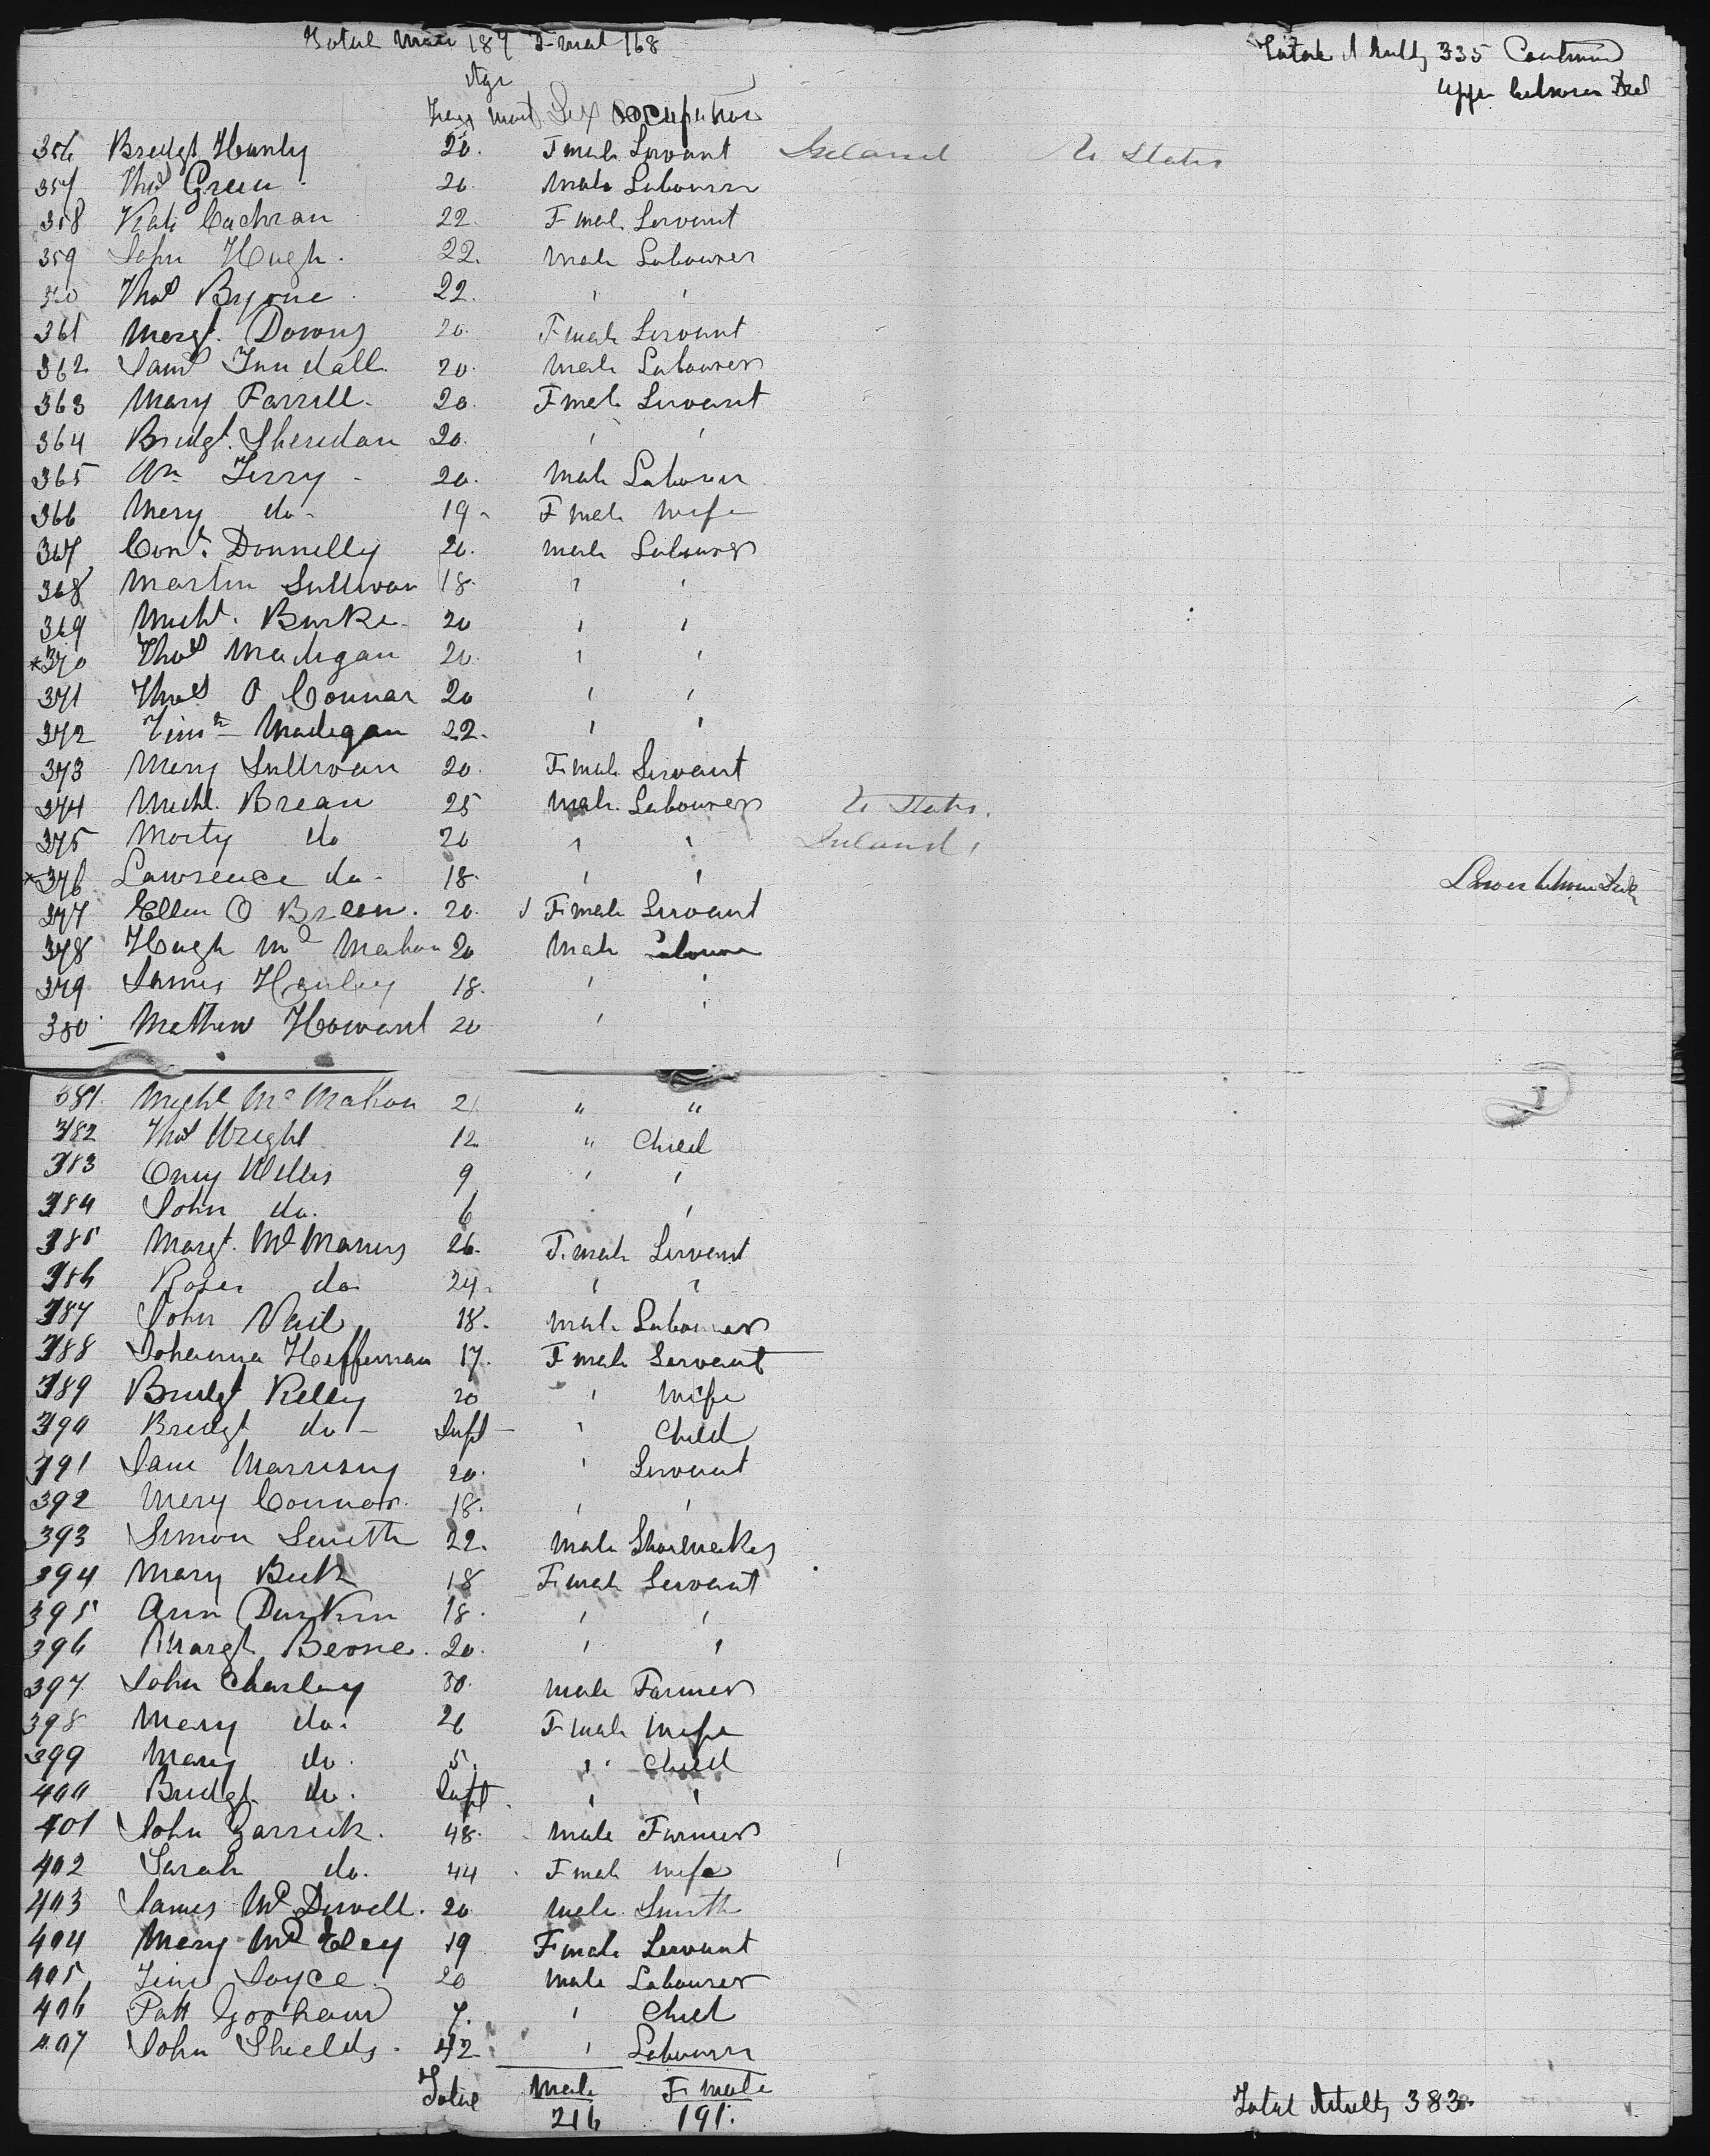 Total Male 189 Fmal 168
Total Adults 335 Continued
Age
Upper between Deck
Years Mont Sex Occupation
356 Bredgt Hanly 20. Fmale Servant Ireland U States
357 Thos Green 20. Male Labourer
358 Kate Cochran 22. Fmale Servant
359 John Hough. 22. Male Labourer
360 Thos Byrne 22. " "
361 Margt. Downs 20. Fmale Servant
362 Saml Tyndall 20. Male Labourer
363 Mary Farrell. 20. Fmale Servant
364 Bridgt. Sheridan 20. " "
365 Wm Terry - 20. Male Labourer
366 Mary do - 19 - Fmale Wife
367 Cont. Donnelly 20. Male Labourer
368 Martin Sullivan 18. " "
369 Michl. Burke 20 " "
*370 Thos Madigan 20. " "
371 Thos O Connar 20 " "
372 Timth Madigan 22. " "
373 Mary Sullivan 20. Fmale Servant
374 Michl. Brean 25 Male Labourer U States.
375 Morty do 20 " " Ireland
*376 Lawrence do - 18. " " Lower between Deck
377 Ellen O Breen. 20. Fmale Servant
378 Hugh Mc Mahon 20 Male Labourer
379 James Hanley 18. " "
380. Mathew Howard 20 " "
381. Michl Mc Mahon 21 " "
382 Thos Wright 12 " Child
383 Willis 9 " "
384 John do. 6 " "
385 Margt. Mc Manus 26. Fmale Servant
386 Roser do 24. " "
387 John Vail 18. Male Labourer
388 Johanna Heffernan 17. Fmale Servant
389 Bridgt Kelly 20 " Wife
390 Bredgt do - Inft - " Child
391 Jane Marrissy 20. " Servant
392 Mary Connor. 18. " "
393 Simon Smith 22. Male Shoemaker
394 Mary Beek 18 Fmale Servant
395 Ann Durkin 18. " "
396 Margt Beorne. 20. " "
397 John Charley 30. Male Farmer
398 Mary do. 26 Fmale Wife
399 Mary do. 5. " Child
400 Bridgt do. Inft. " "
401 John Garrick. 48. Male Farmer
402 Sarah do. 44 Fmale Wife
403 James Mc Dowell. 20 Male Smith
404 Mary Mc Eley 19 Fmale Servant
405 Jim Joyce 20 Male Labourer
406 Patt Gorham 7. " Child
407 John Shields. 42. " Labourer
Total Male Fmale
216 191.
Total Adults 383